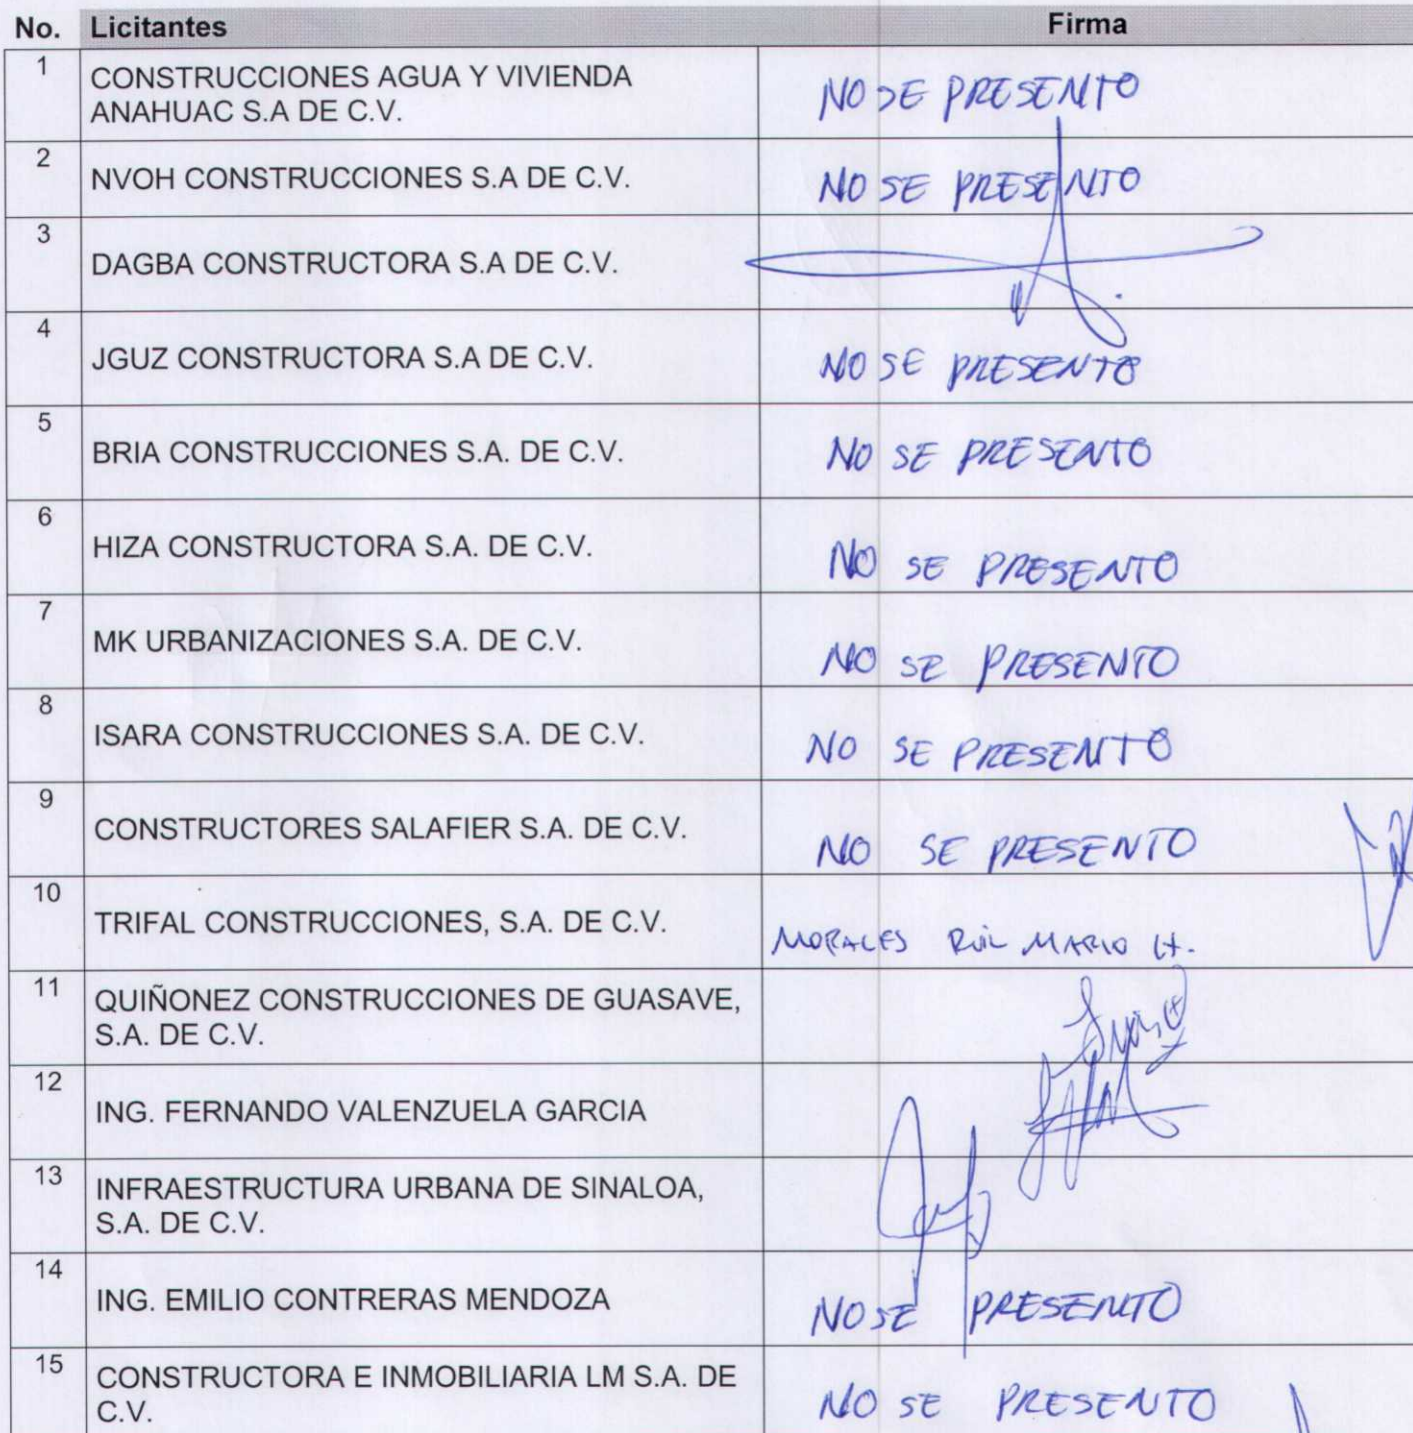 No. Licitantes Firma
1 CONSTRUCCIONES AGUA Y VIVIENDA
ANAHUAC S.A DE C.V. NO SE PRESENTO
2 NVOH CONSTRUCCIONES S.A DE C.V. NO SE PRESENTO
3 DAGBA CONSTRUCTORA S.A DE C.V.
4 JGUZ CONSTRUCTORA S.A DE C.V. NO SE PRESENTO
5 BRIA CONSTRUCCIONES S.A. DE C.V. NO SE PRESENTO
6 HIZA CONSTRUCTORA S.A. DE C.V. NO SE PRESENTO
7 MK URBANIZACIONES S.A. DE C.V. NO SE PRESENTO
8 ISARA CONSTRUCCIONES S.A. DE C.V. NO SE PRESENTO
9 CONSTRUCTORES SALAFIER S.A. DE C.V. NO SE PRESENTO
10 TRIFAL CONSTRUCCIONES, S.A. DE C.V. MORALES MARIO H.
11 QUIÑONEZ CONSTRUCCIONES DE GUASAVE,
S.A. DE C.V.
12 ING. FERNANDO VALENZUELA GARCIA
13 INFRAESTRUCTURA URBANA DE SINALOA,
S.A. DE C.V.
14 ING. EMILIO CONTRERAS MENDOZA NO SE PRESENTO
15 CONSTRUCTORA E INMOBILIARIA LM S.A. DE
C.V. NO SE PRESENTO